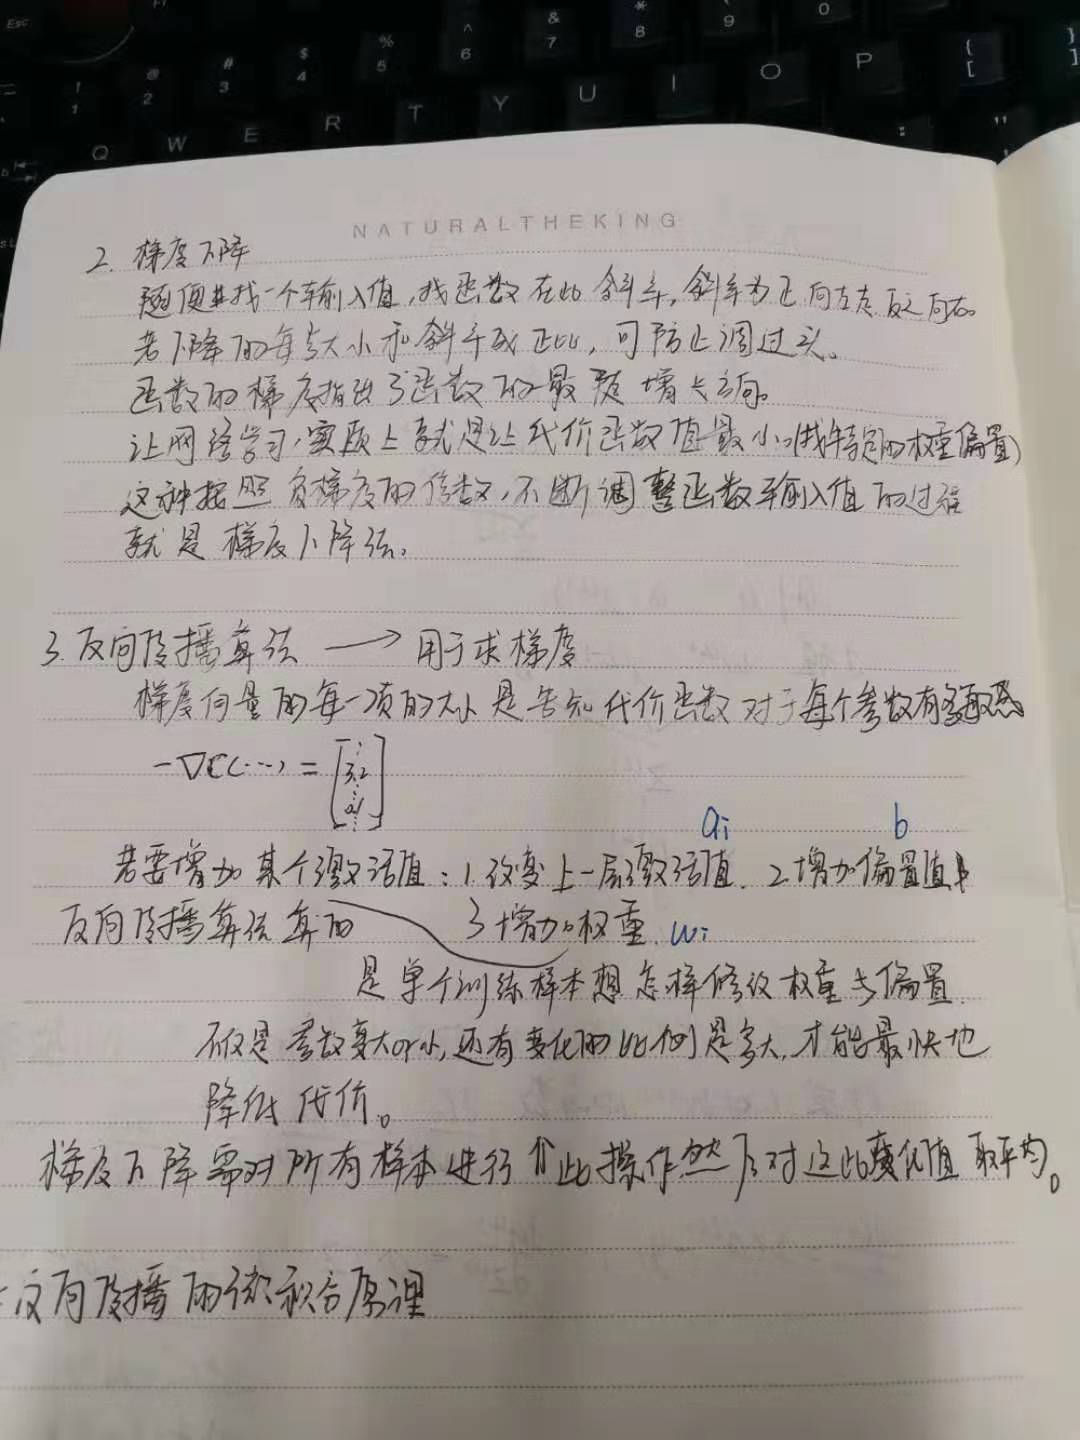 NATURALTHEKING
2. 梯度下降
随便找一个输入值,找函数在此斜率,斜率为正向左走反之向右。
若下降的每步大小和斜率成正比,可防止调过头。
函数的梯度指出了函数的最陡增长方向。
让网络学习,实质上就是让代价函数值最小。(找特定的权重偏置)
这种按照负梯度的倍数,不断调整函数输入值的过程
就是梯度下降法。
3. 反向传播算法 → 用于求梯度
梯度向量的每一项的大小是告知代价函数对于每个参数有多敏感
-∇C(...) = [3.2
ai b
若要增加某个激活值:1.改变上一层激活值. 2.增加偏置值
反向传播算法算的 3.增加权重. wi
是单个训练样本想怎样修改权重与偏置.
不仅是参数变大or小,还有变化的比例是多大,才能最快地
降低代价。
梯度下降需对所有样本进行此操作然后对这些变化值取平均。
反向传播的微积分原理
Esc
1 2 3 $ 4 % 5 ^ 6 & 7 * 8 9 0
Q W E R T Y U I O P { [